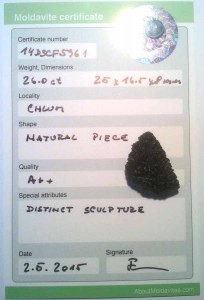 Moldavite certificate
Certificate number
Weight, Dimensions
26.0 ct 25 x 16.5 x 8 mm
Locality
CHLUM
Shape
NATURAL PIECE
Quality
A++
Special attributes
DISTINCT SCULPTURE
Date Signature
2.5.2015